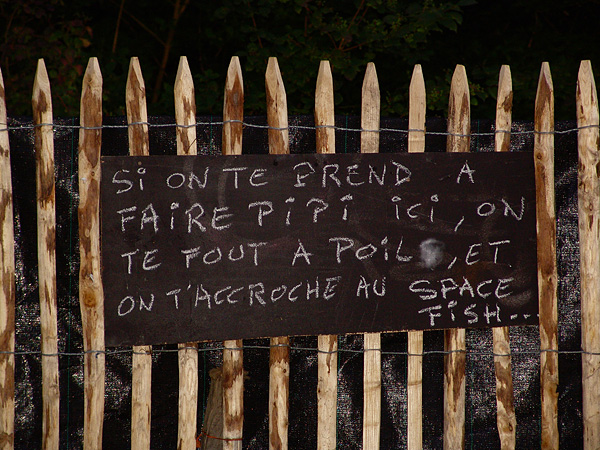 Si ON TE PREND A
FAIRE PiPi iCi, ON
TE FOUT A POiL, ET
ON T'ACCROCHE AU SPACE
FiSH...